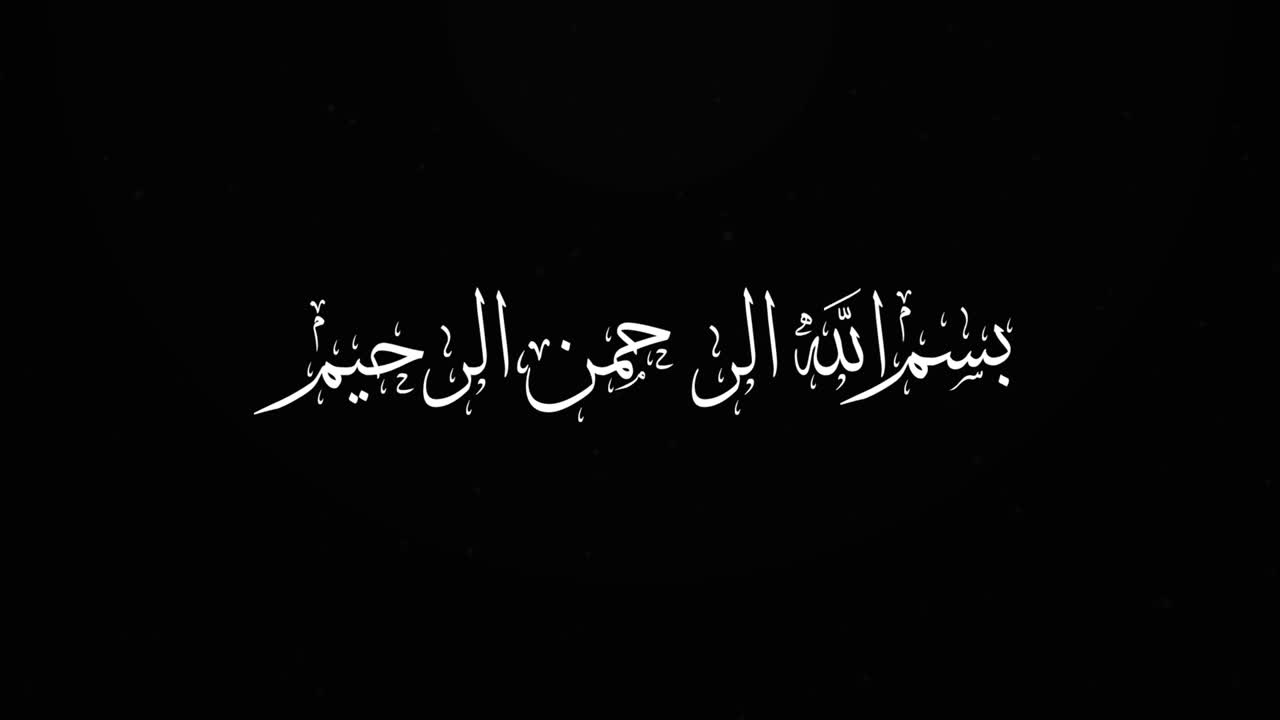 بسم اللَّهُ الرحمن الرحيم